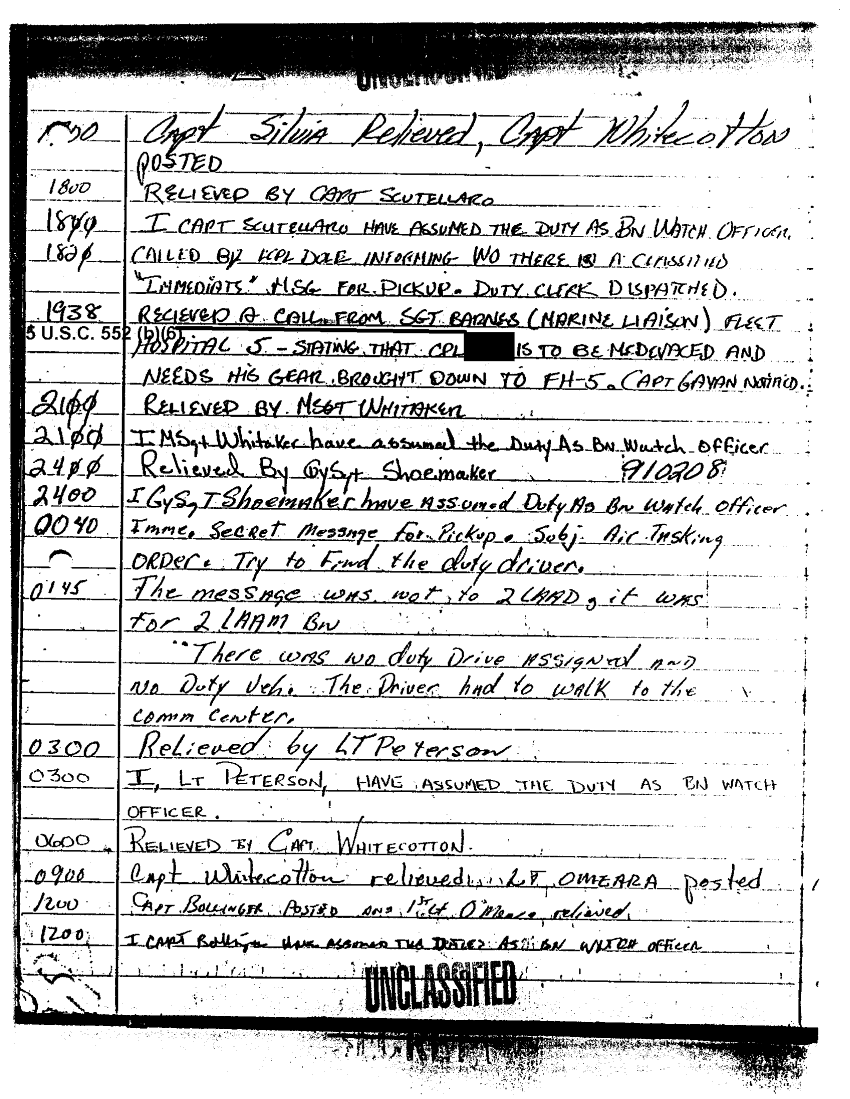 UNCLASSIFIED
Capt Silvia Relieved, Capt Whitecotton
POSTED
1800 RELIEVED BY CAPT SCUTELLARO
1800 I CAPT SCUTELLARO HAVE ASSUMED THE DUTY AS BN WATCH OFFICER.
1820 CALLED BY LCPL DOLE INFORMING WO THERE IS A CLASSIFIED
"IMMEDIATE" MSG FOR PICKUP. DUTY CLERK DISPATCHED.
1938 RECIEVED A CALL FROM SGT BARNES (MARINE LIAISON) FLEET
5 U.S.C. 552 (b)(6)
HOSPITAL 5 - STATING THAT CPL IS TO BE MEDEVACED AND
NEEDS HIS GEAR BROUGHT DOWN TO FH-5. CAPT GAVAN NOTIFIED.
2100 RELIEVED BY MSGT WHITAKER
2100 I MSgt Whitaker have assumed the Duty As BN Watch officer
2400 Relieved By GySgt Shoemaker 910208
2400 I GySgT Shoemaker have Assumed Duty As BN Watch officer
0040 Imme. Secret Message For Pickup. Subj. Air Tasking
ORDer. Try to Find the duty driver.
0145 The message was not to 2 LAAD, it was
For 2 LAAM BN
"There was no duty Drive Assigned and
No Duty Veh. The Driver had to walk to the
comm center.
0300 Relieved by LT Peterson
0300 I, LT PETERSON, HAVE ASSUMED THE DUTY AS BN WATCH
OFFICER.
0600 RELIEVED BY CAPT. WHITECOTTON.
0900 Capt Whitecotton relieved, LT OMEARA posted
1200 CAPT BOLLINGER POSTED AND 1st Lt O'Meara relieved.
1200 I CAPT Bollinger HAVE ASSUMED THE DUTIES AS BN WATCH OFFICER
UNCLASSIFIED